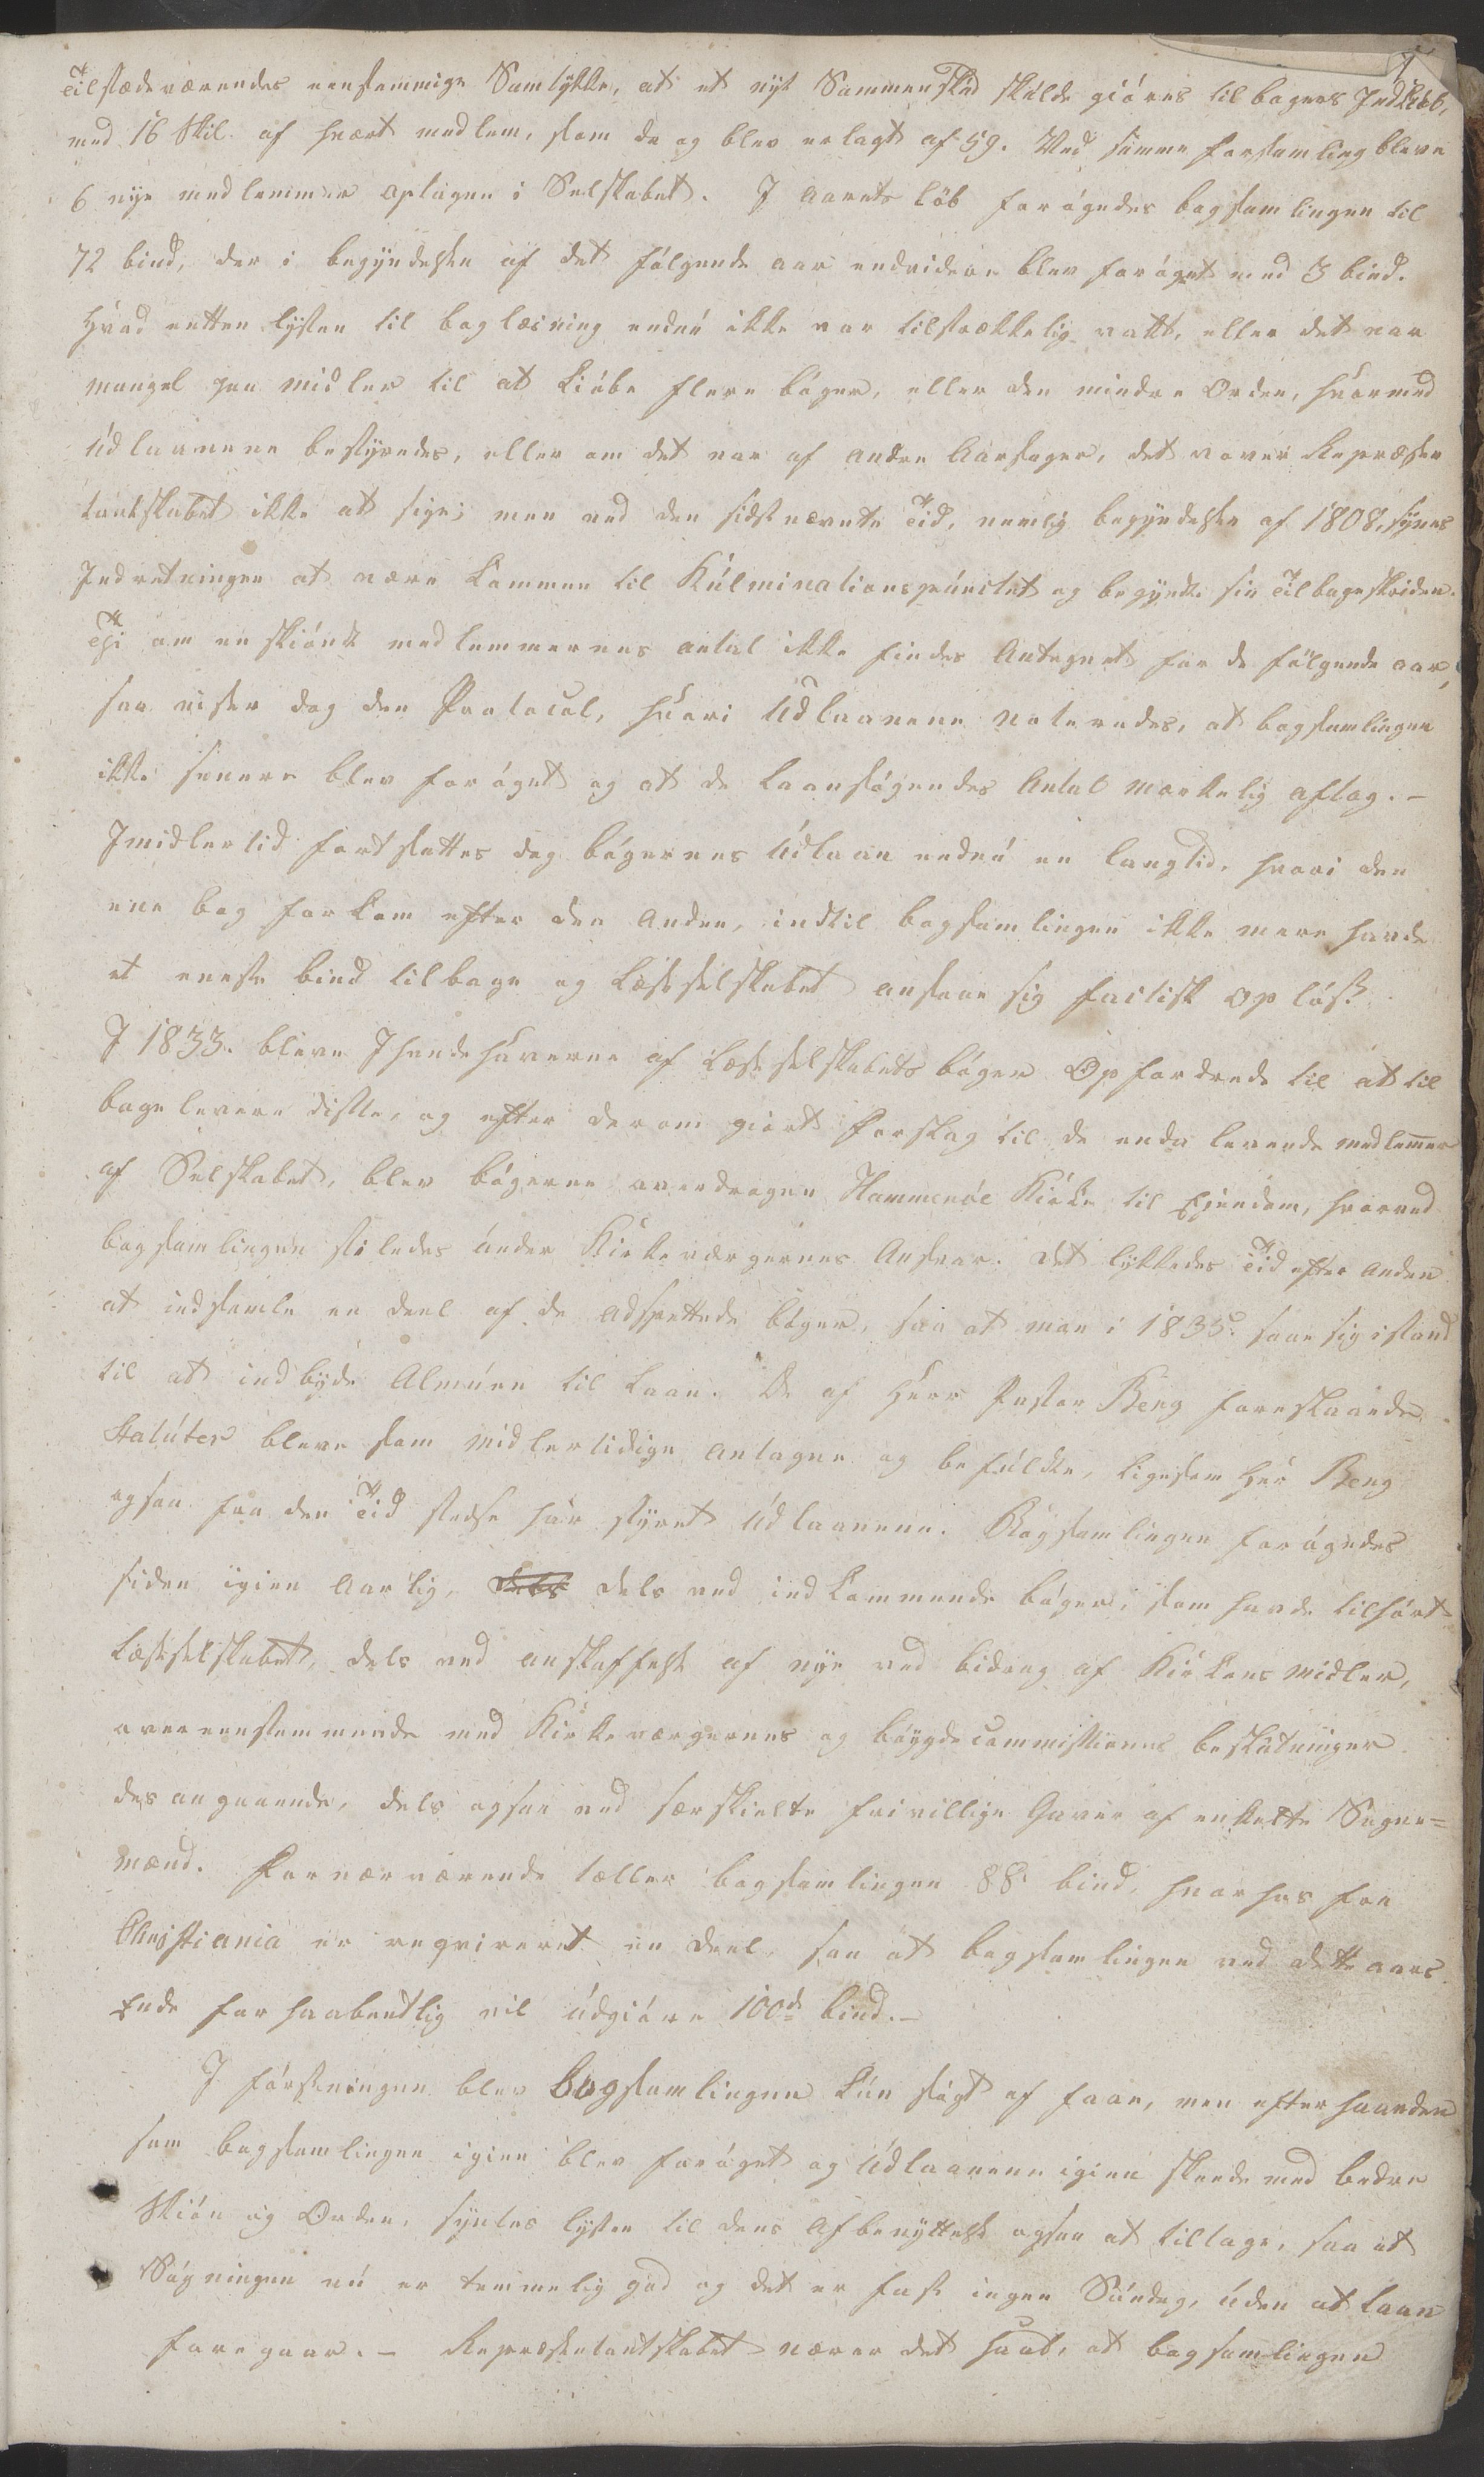 Tilstædeværendes eenstemmige Samtykke, at et nyt Sammenskud skulde giöres til bogers Indkiöb,
med 16 Skil. af hvert medlem, som da og blev erlagt af 59. Ved samme forsamling bleve
6 nye medlemmer optagen i Selskabet. I aarets löb forögedes bogsamlingen til
72 bind, der i begyndelsen af det fölgende aar endvidere blev foröget med 3 bind.
Hvad enten lysten til boglæsning endnu ikke var tilstrækkelig vakt, eller det var
mangel paa midler til at kiöbe flere böger, eller den mindre Orden, hvormed
Udlaanene bestyredes, eller om det var af andre Aarsager, det vover Repræsen
tantskabet ikke at sige; men ved den sidstnævnte Tid, nemlig begyndelsen af 1808, synes
Indretningen at være kommen til Kulminationspunctet og begyndte sin Tilbageskriden.
Thi om enskiöndt medlemmernes antal ikke findes Antegnet for de fölgende aar,
saa viser dog den Protocol, hvori Udlaanene noteredes, at bogsamlingen
ikke senere blev foröget og at de Laansögendes Antal mærkelig aftog. –
Imidlertid fortsattes dog bögernes Udlaan endnu en langtid, hvori den
ene bog forkom efter den anden, indtil bogsamlingen ikke mere havde
et eneste bind tilbage og Læseselskabet ansaae sig factisk oplöst.
I 1833. bleve Ihændehaverne af Læseselskabets böger Opfordrede til at til
bagelevere disse, og efter derom giort Forslag til de enda levende medlemer
af Selskabet, blev bögerne overdragen Hammeröe Kirke til Ejendom, hvorved
bogsamlingen stiledes under Kirkeværgernes Ansvar. Det lykkedes Tid efter anden
at indsamle en deel af de adsprettede böger, saa at man i 1835. saae sig istand
til at indbyde Almuen til Laan. De af Herr Pastor Berg foreslaaede
Statuter bleve som midlertidige antagne og befulde, ligesom Hr Berg
ogsaa fra den Tid stedse har styret Udlaanene. Bogsamlingen forögedes
siden igien Aarlig, dels dels ved indkommende böger, som havde tilhört
Læseselskabet, dels ved anskaffelse af nye ved bidrag af Kirkens midler,
overeenstemmende med Kirkeværgernes og böygdecommissionens beslutninger
desangaaende, dels ogsaa ved særskielte frivillige Gaver af enkelte Sogne=
mænd. For nærværende tæller bogsamlingen 88 bind, hvorhos fra
Christiania er reqvireret en deel, saa at bogsamlingen ved dette aars
Ende forhaabentlig vil udgiöre 100d bind. –
I förstningen blev bogsamlingen kun sögt af faae, men efterhaanden
som bogsamlingen igien blev foröget og Udlaanene igien skeede med bedre
Skiön og Orden, syntes lysten til dens Afbenyttelse ogsaa at tiltage, saa at
Sögningen nu er temmelig god og det er fast ingen Söndag, uden at Laan
foregaar. – Repræsentantskabet nærer det haab, at bogsamlingen